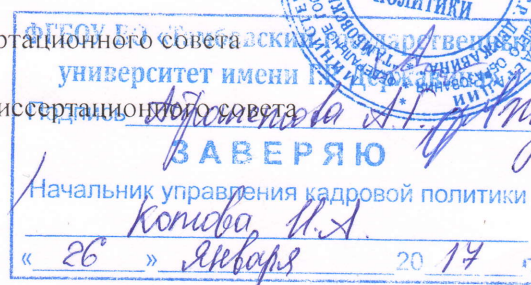 ПОЛИТИКИ
ртационного совета
ФГБОУ ВО «Тамбовский государственный
университет имени Г.Р. Державина»
иссертационного совета
Подпись
ЗАВЕРЯЮ
Начальник управления кадровой политики
Котова И.А.
« 26 » января 20 17 г